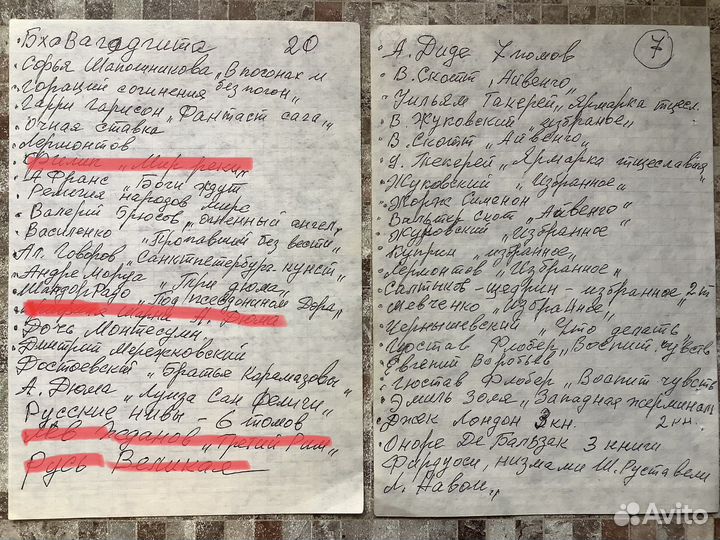 • Бхавагадгита 20
• Софья Шапошникова „В погонах и
без погон"
• Горации сочинения
• Гарри Гарисон „Фантаст сага„
• Очная ставка
• Лермонтов
• „Мир реки„
• А Франс „Боги ждут
• Религия народов мира
• Валерий Брюсов „Огненный ангел„
• Василенко „Пропавший без вести„
• Ал. Говоров „Санктпетербура кунст„
• Андре Моруа „Три дюма„
„Под псевдонимом Дора„
А. Дюма
• Дочь Монтесумы
• Дмитрий Мережковский
Достоевский „Братья Карамазовы"
А. Дюма „Луиза Сан Фелиги„
Русские нивы - 6 томов
Лев Жданов „Третий Рим„
Русь Великая
• А. Диде 7 томов 7
• В. Скотт „Айвенго„
• Уильям Такерей „Ярмарка тщесл.
• В. Жуковский „избраное"
• В. Скотт „Айвенго"
• У. Текерей „Ярмарка тщеславия
• Жуковский „Избранное"
• Жорж Сименон
• Вальтер Скот „Айвенго"
• Жуковский „Избранное"
• Куприн „избраное„
• Лермонтов „Избранное"
• Салтыков-щедрин - избраное „2т
• Шевченко „Избранное"
• Чернышевский „Что делать„
• Гюстав Флобер „Воспит. чувств
• Евгений Воробьев
• Гюстав Флобер „Воспит чувств
• Эмиль Золя „Западня, жерминаль
2 кн.
• Джек Лондон 3 кн.
• Оноре Де Бальзак 3 книги
Фирдуоси, низмами Ш. Руставели
Л. Навои„
Avito